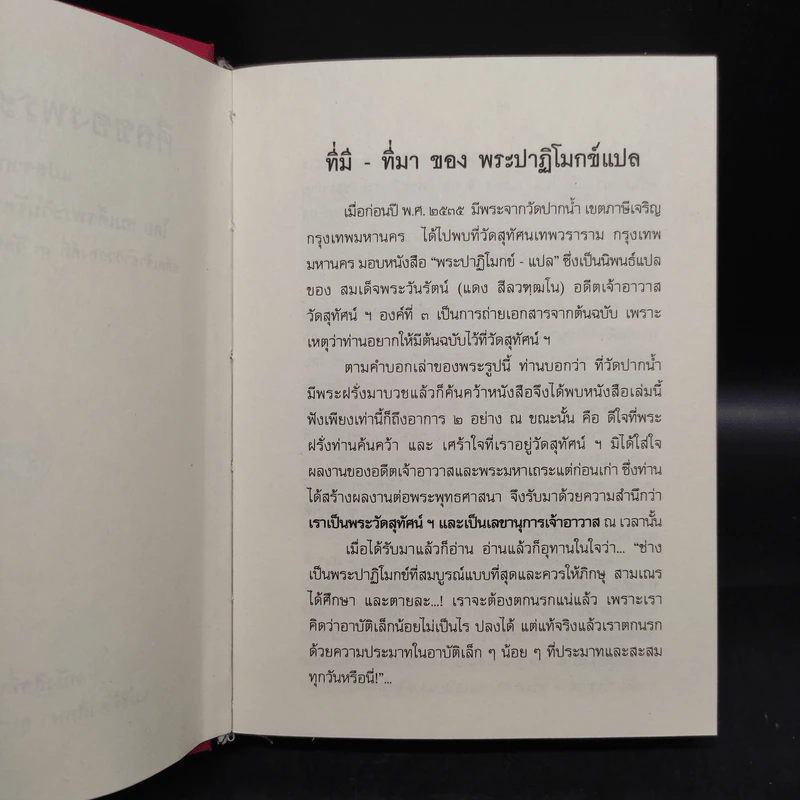 ที่มี - ที่มา ของ พระปาฏิโมกข์แปล
เมื่อก่อนปี พ.ศ. ๒๕๓๕ มีพระจากวัดปากน้ำ เขตภาษีเจริญ
กรุงเทพมหานคร ได้ไปพบที่วัดสุทัศนเทพวราราม กรุงเทพ
มหานคร มอบหนังสือ “พระปาฏิโมกข์ - แปล” ซึ่งเป็นนิพนธ์แปล
ของ สมเด็จพระวันรัตน์ (แดง สีลวฑฺฒโน) อดีตเจ้าอาวาส
วัดสุทัศน์ ฯ องค์ที่ ๓ เป็นการถ่ายเอกสารจากต้นฉบับ เพราะ
เหตุว่าท่านอยากให้มีต้นฉบับไว้ที่วัดสุทัศน์ ฯ
ตามคำบอกเล่าของพระรูปนี้ ท่านบอกว่า ที่วัดปากน้ำ
มีพระฝรั่งมาบวชแล้วก็ค้นคว้าหนังสือจึงได้พบหนังสือเล่มนี้
ฟังเพียงเท่านี้ก็ถึงอาการ ๒ อย่าง ณ ขณะนั้น คือ ดีใจที่พระ
ฝรั่งท่านค้นคว้า และ เศร้าใจที่เราอยู่วัดสุทัศน์ ฯ มิได้ใส่ใจ
ผลงานของอดีตเจ้าอาวาสและพระมหาเถระแต่ก่อนเก่า ซึ่งท่าน
ได้สร้างผลงานต่อพระพุทธศาสนา จึงรับมาด้วยความสำนึกว่า
เราเป็นพระวัดสุทัศน์ ฯ และเป็นเลขานุการเจ้าอาวาส ณ เวลานั้น
เมื่อได้รับมาแล้วก็อ่าน อ่านแล้วก็อุทานในใจว่า... “ช่าง
เป็นพระปาฏิโมกข์ที่สมบูรณ์แบบที่สุดและควรให้ภิกษุ สามเณร
ได้ศึกษา และตายละ...! เราจะต้องตกนรกแน่แล้ว เพราะเรา
คิดว่าอาบัติเล็กน้อยไม่เป็นไร ปลงได้ แต่แท้จริงแล้วเราตกนรก
ด้วยความประมาทในอาบัติเล็ก ๆ น้อย ๆ ที่ประมาทและสะสม
ทุกวันหรือนี่!”...